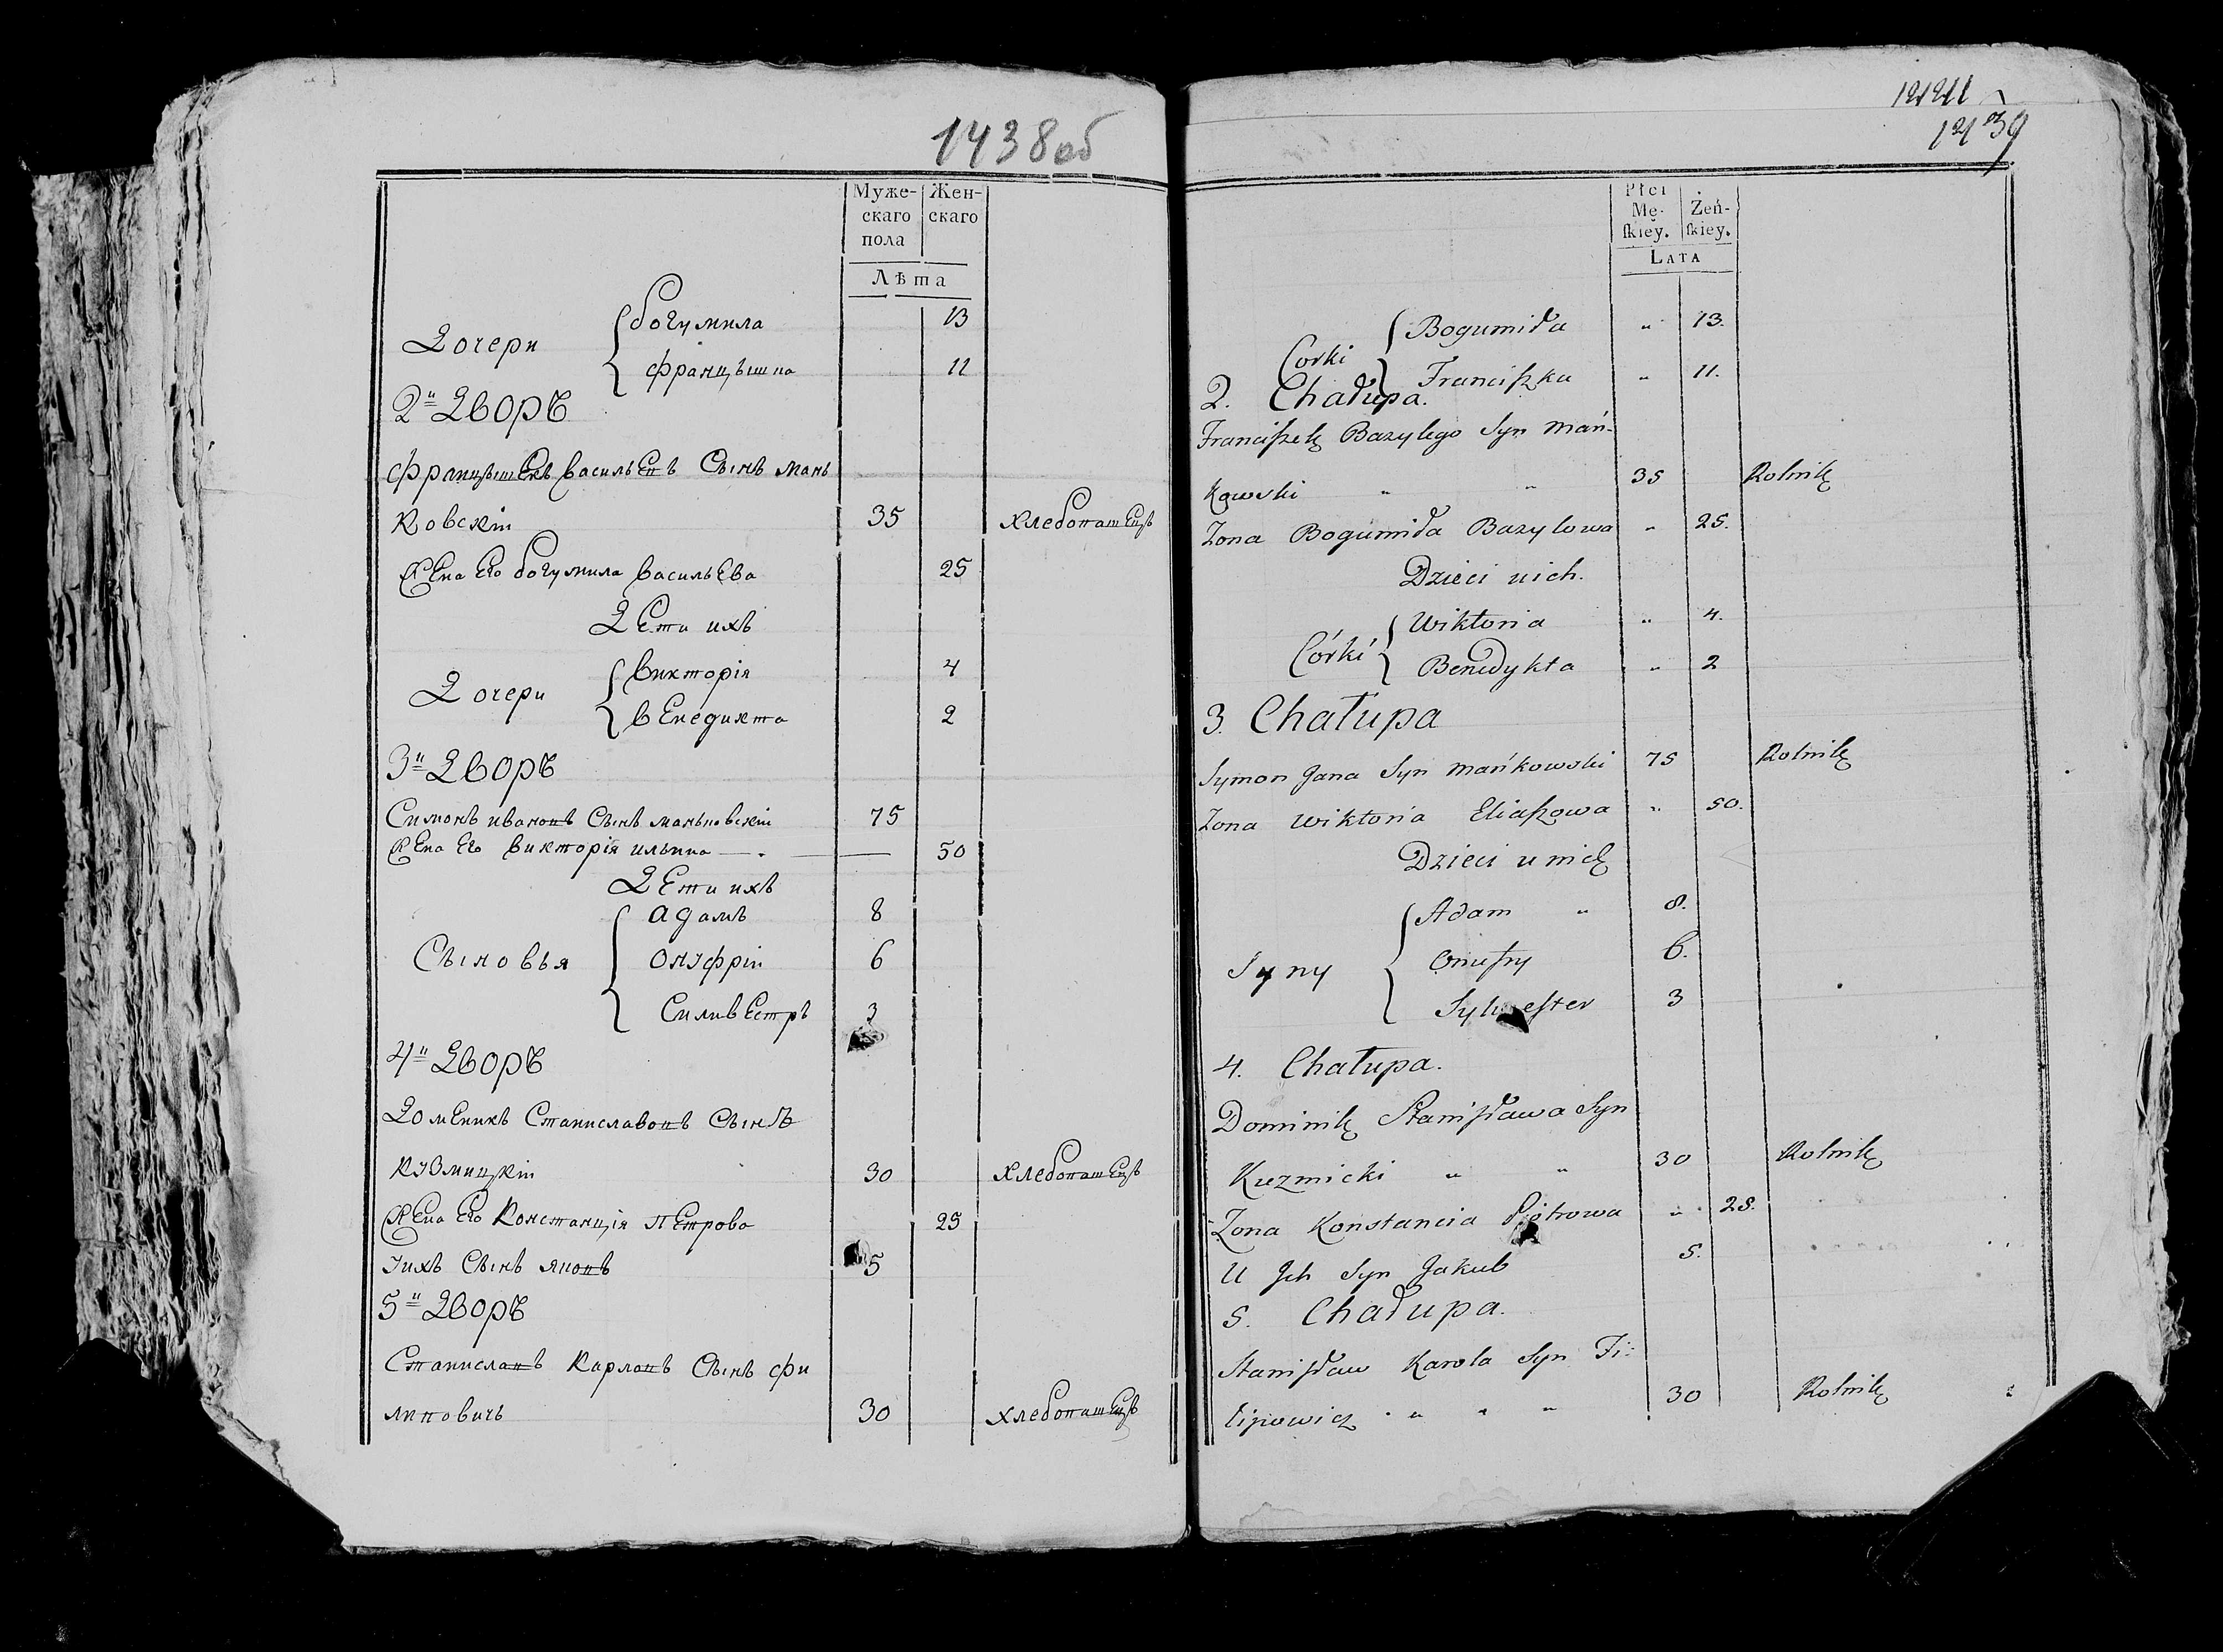 1438об
Муже-
скаго
пола
Жен-
скаго
Лѣта
Дочери
богумила 13
францѣшка 11
2й Дворъ
францѣшекъ василЬевъ Сынъ мань
Ковскій 35 хлебопашецъ
Жена его богумила василЬева 25
Дети ихъ
Дочери
викторія 4
венедикта 2
3й Дворъ
Симонъ ивановъ Сынъ маньковскій 75
Жена его викторія ильина — 50
Дети ихъ
Сыновья
адамъ 8
онуфрій 6
Силивестръ 3
4й Дворъ
Доменикъ Станиславовъ Сынъ
кузмицкій 30 хлебопашецъ
Жена его Констанція петрова 25
уихъ Сынъ яковъ 5
5й Дворъ
Станиславъ Карловъ Сынъ фи
липовичъ 30 хлебопашецъ
1439
Płci
Mę-
skiey.
Żeń-
skiey.
Lata
Corki
Bogumiła „ 13.
Franciszka „ 11.
2. Chałupa.
Franciszek Bazylego Syn Mań-
kowski „ „ 35 Rolnik
Zona Bogumiła Bazylowa „ 25.
Dzieci uich.
Córki
Wiktoria „ 4.
Benedykta „ 2
3. Chałupa
Symon Jana Syn Mańkowski 75 Rolnik
Zona Wiktoria Eliaszowa „ 50.
Dzieci u nich
Syny
Adam „ 8.
Onufry 6.
Sylwester 3
4. Chałupa.
Dominik Stanisława Syn
Kuzmicki „ „ 30 Rolnik
Zona Konstancia Piotrowa „ 25.
U Jch Syn Jakub 5.
5. Chałupa.
Stanisław Karola Syn Fi-
lipowicz „ „ „ 30 Rolnik